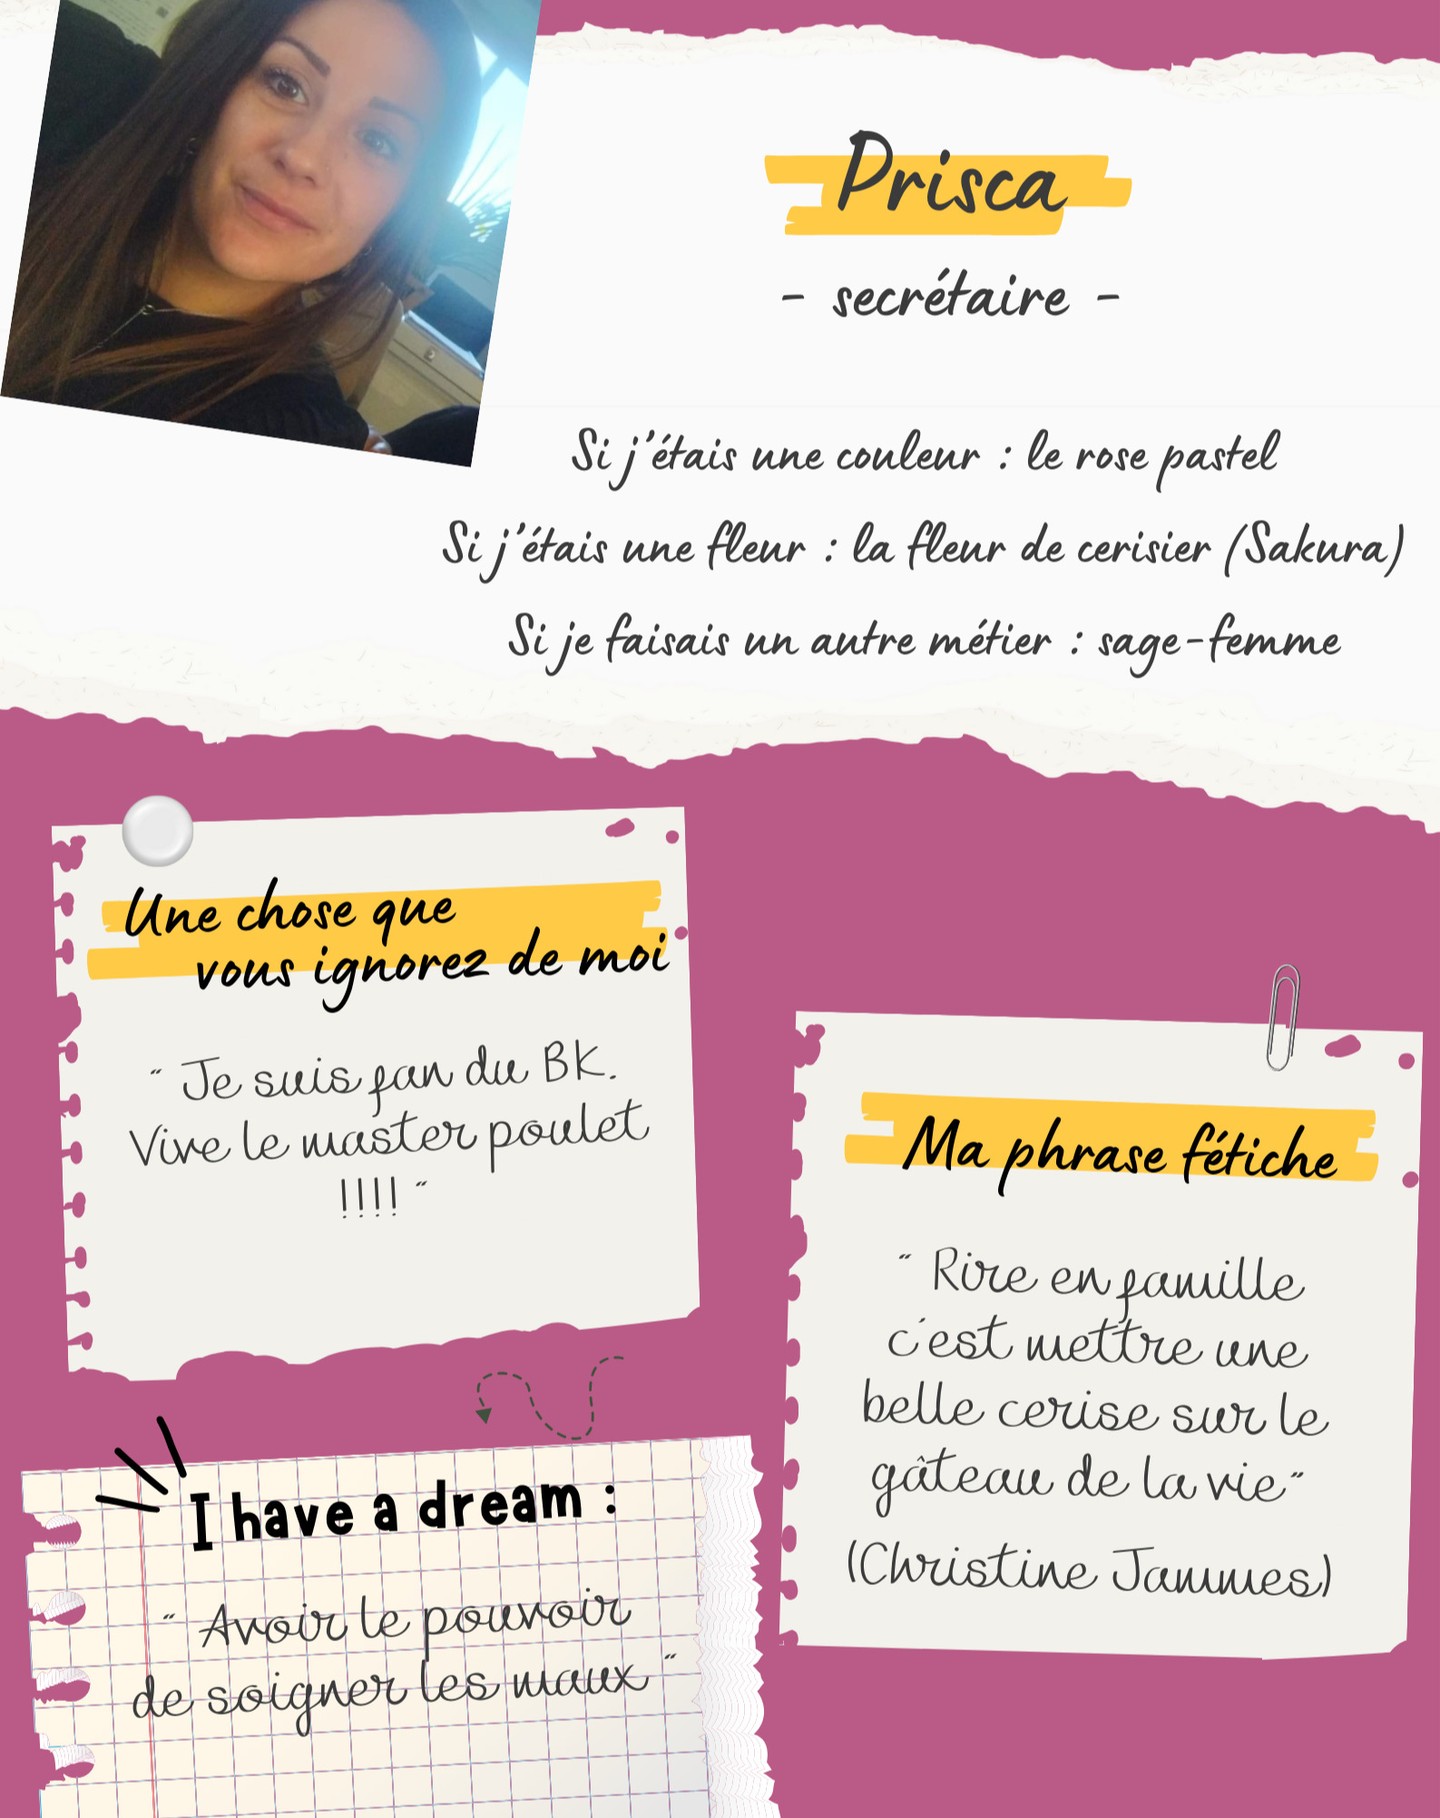 Prisca
- secrétaire -
Si j'étais une couleur : le rose pastel
Si j'étais une fleur : la fleur de cerisier (Sakura)
Si je faisais un autre métier : sage-femme
Une chose que
vous ignorez de moi
" Je suis fan du BK.
Vive le master poulet
!!!! "
Ma phrase fétiche
" Rire en famille
c'est mettre une
belle cerise sur le
gâteau de la vie"
(Christine Jammes)
I have a dream :
" Avoir le pouvoir
de soigner les maux "